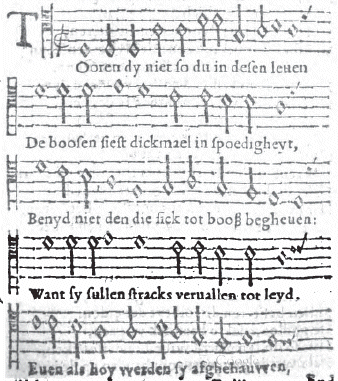 T
Ooren dy niet so du in desen leuen
De boosen siest dickmael in spoedigheyt,
Benyd niet den die sick tot booß begheuen:
Want sy sullen stracks veruallen tot leyd,
Euen als hoy werden sy afghehauwen,